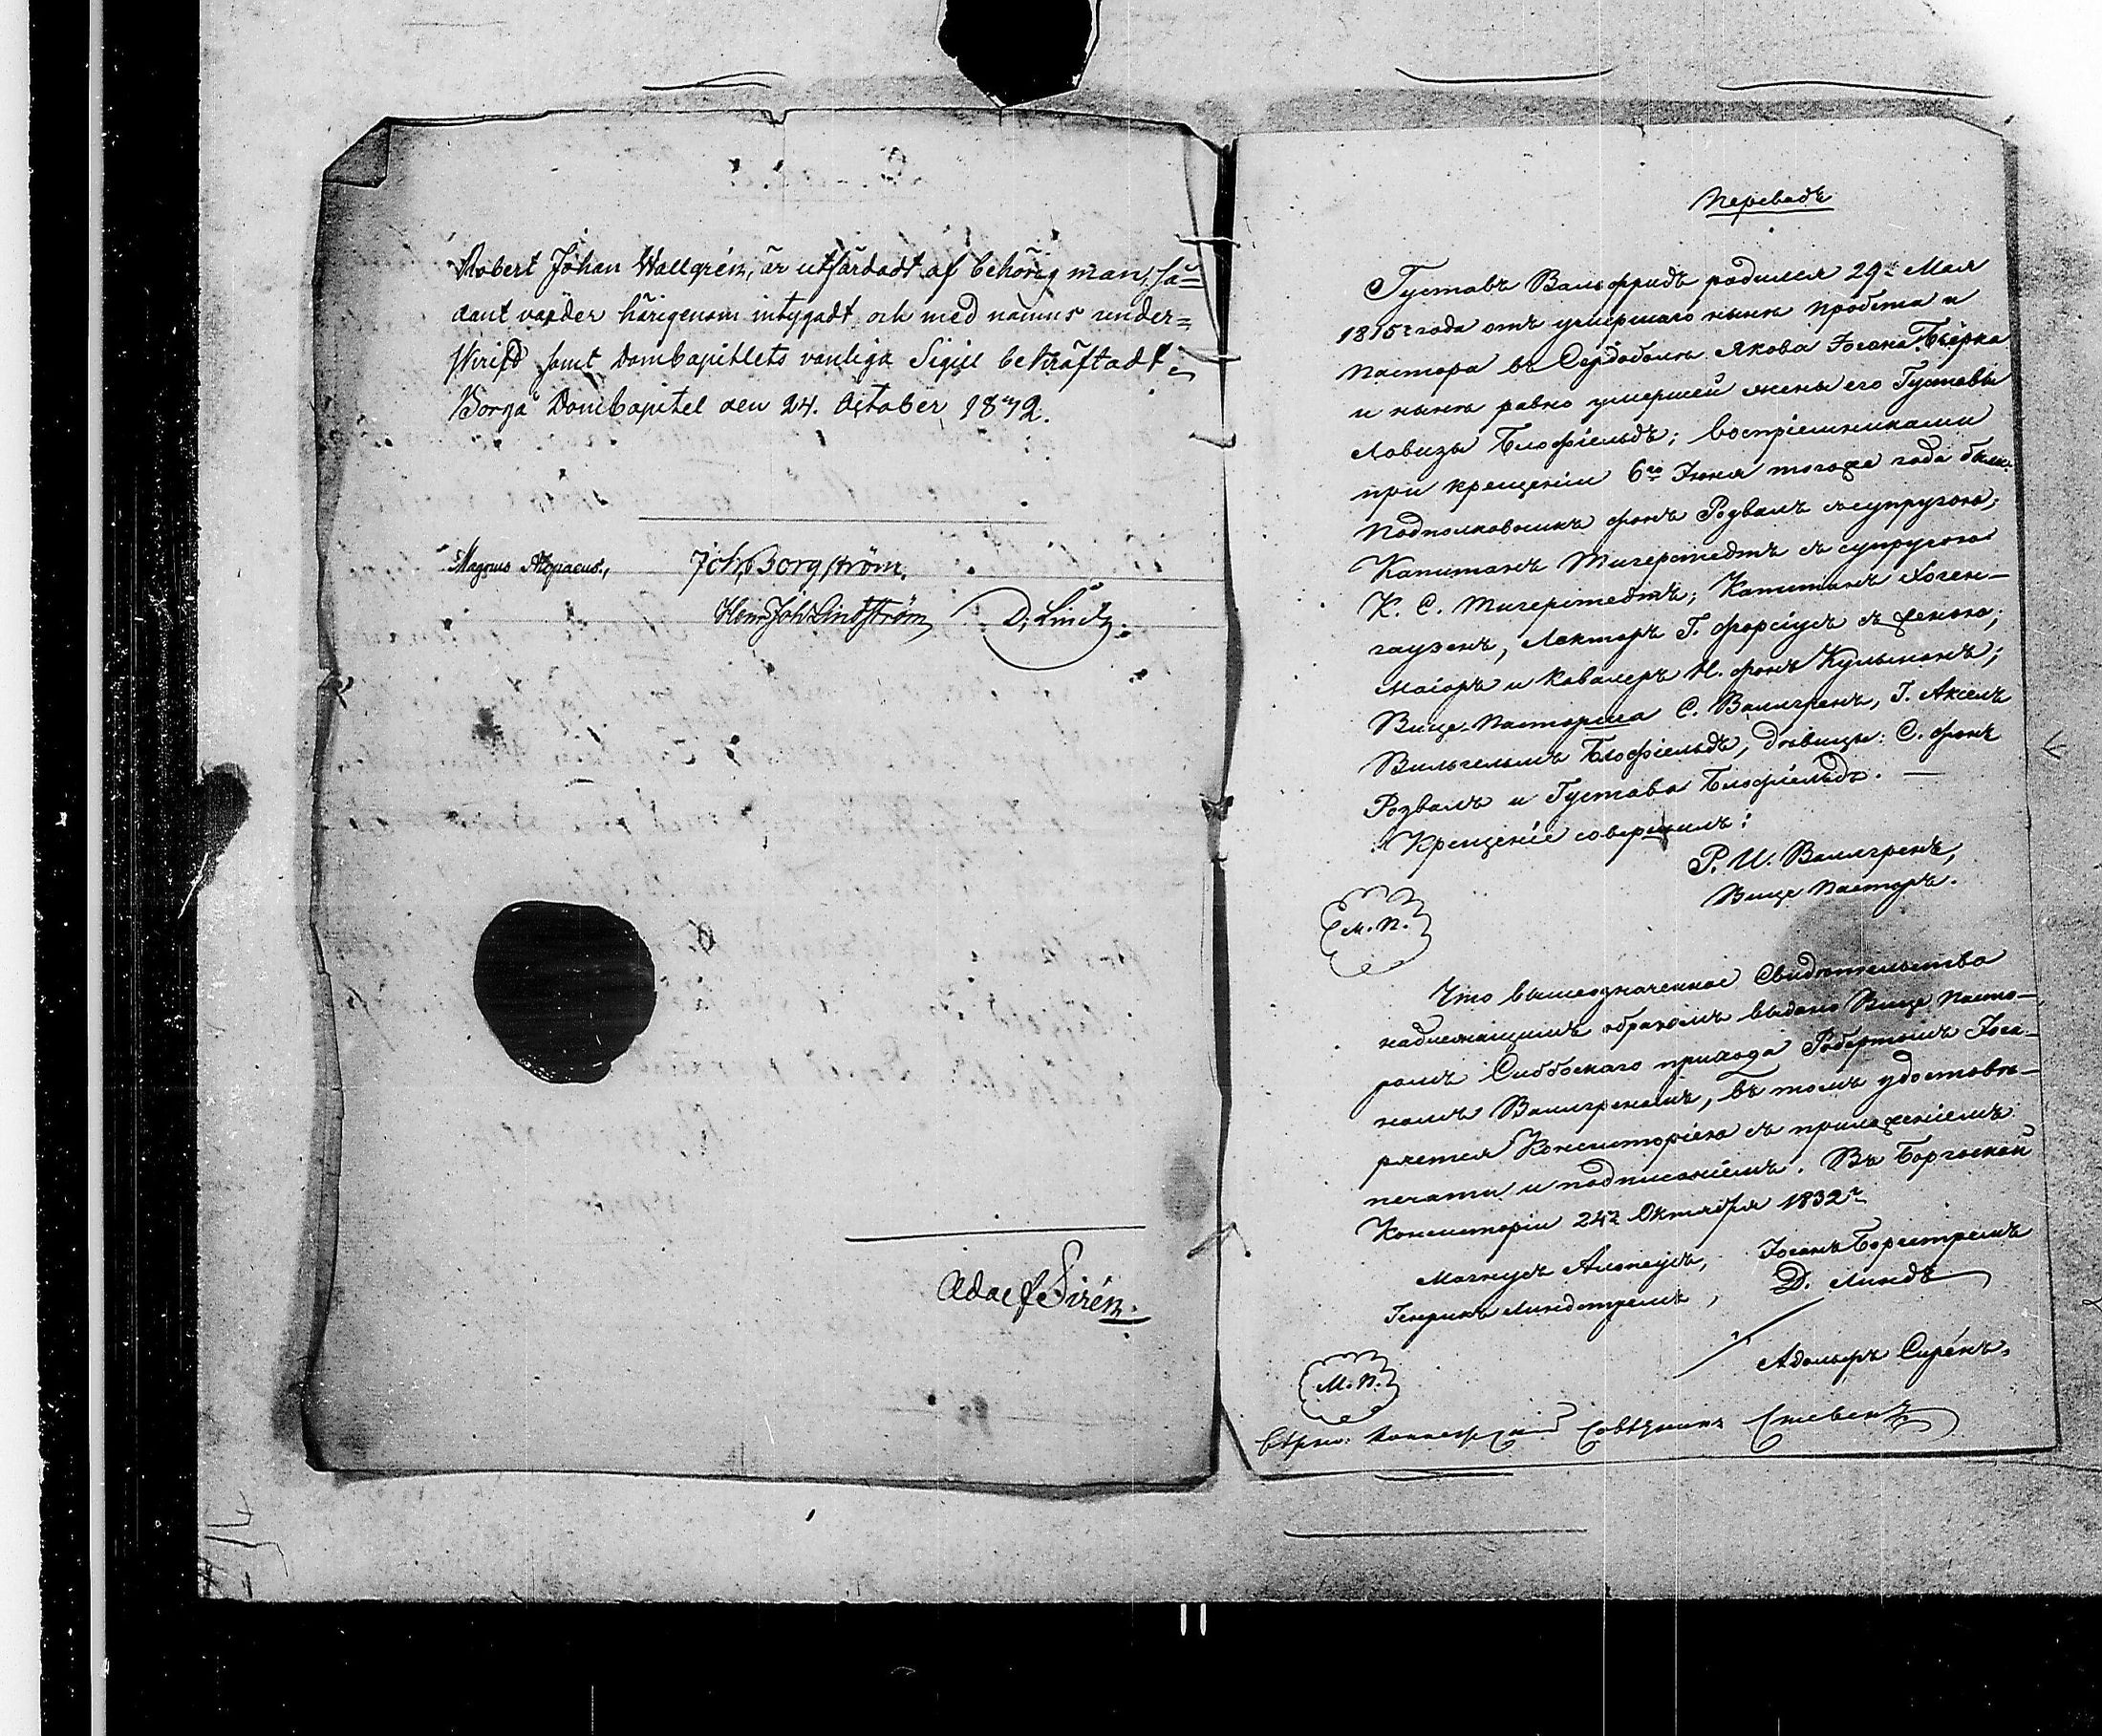 Robert Johan Wallgrén, är utfärdadt af behörig man, så=
dant varder härigenom intygadt och med namns under=
skrift samt DomCapitlets vanliga Sigill bekräftadt.
Borgå DomCapitel den 24. October 1832.
Magnus Alopaeus.,
Joh. Borgström.
Henr. Joh. Lindström
D. Lind.
Adolf Sirén.
Переводъ
Густавъ Вальфридъ родился 29г Мая
1815г года отъ умершаго нынѣ пробста и
пастора въ Сердоболѣ Якова Іогана Бьёрка
и нынѣ равно умершей жены его Густавы
Ловизы Блофіельдъ; воспріемниками
при крещеніи 6го Іюня тогоже года были:
Подполковникъ фонъ Розваль съ супругою;
Капитанъ Тигерстедтъ съ супругою
К. С. Тигерстедтъ; Капитанъ Гоген-
гаузенъ, Лекторъ Г. Форсіусъ съ женою;
Маіоръ и Кавалеръ Н. фонъ Кульманъ;
Вице-Пасторша С. Валлгренъ, Г. Аксель
Вильгельмъ Блофіельдъ, дѣвицы: С. фонъ
Розваль и Густава Блофіельдъ. —
Крещеніе совершилъ:
Р. И. Валлгренъ,
Вице Пасторъ.
М. П.
Что вышеозначенное Свидѣтельство
надлежащимъ образомъ выдано Вице Пасто-
ромъ Сиббоскаго прихода Робертомъ Іога-
номъ Валлгреномъ, въ томъ удостовѣ-
ряется Консисторіею съ приложеніемъ
печати и подписаніемъ. Въ Боргоской
Консисторіи 24г Октября 1832г
Магнусъ Алопеусъ, Іоганъ Боргстремъ
Генрихъ Линдстремъ, Д. Линдъ
Адольфъ Сирéнъ.
М. П.
Вѣрно: Коллежскій Совѣтникъ Стевенъ